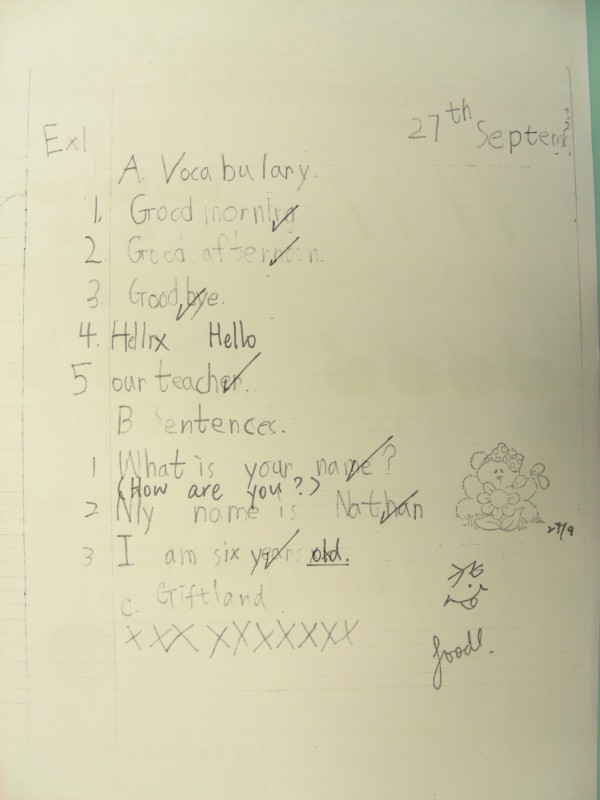 Ex1
27th Septem
A. Vocabulary.
1. Good morning
2. Good afternoon.
3. Goodbye.
4. Hello
5 our teacher.
B Sentences.
1 What is your name?
(How are you?)
2 My name is Nathan
3 I am six years old.
27/9
c. Giftland.
XXX XXXXXXX
Good!